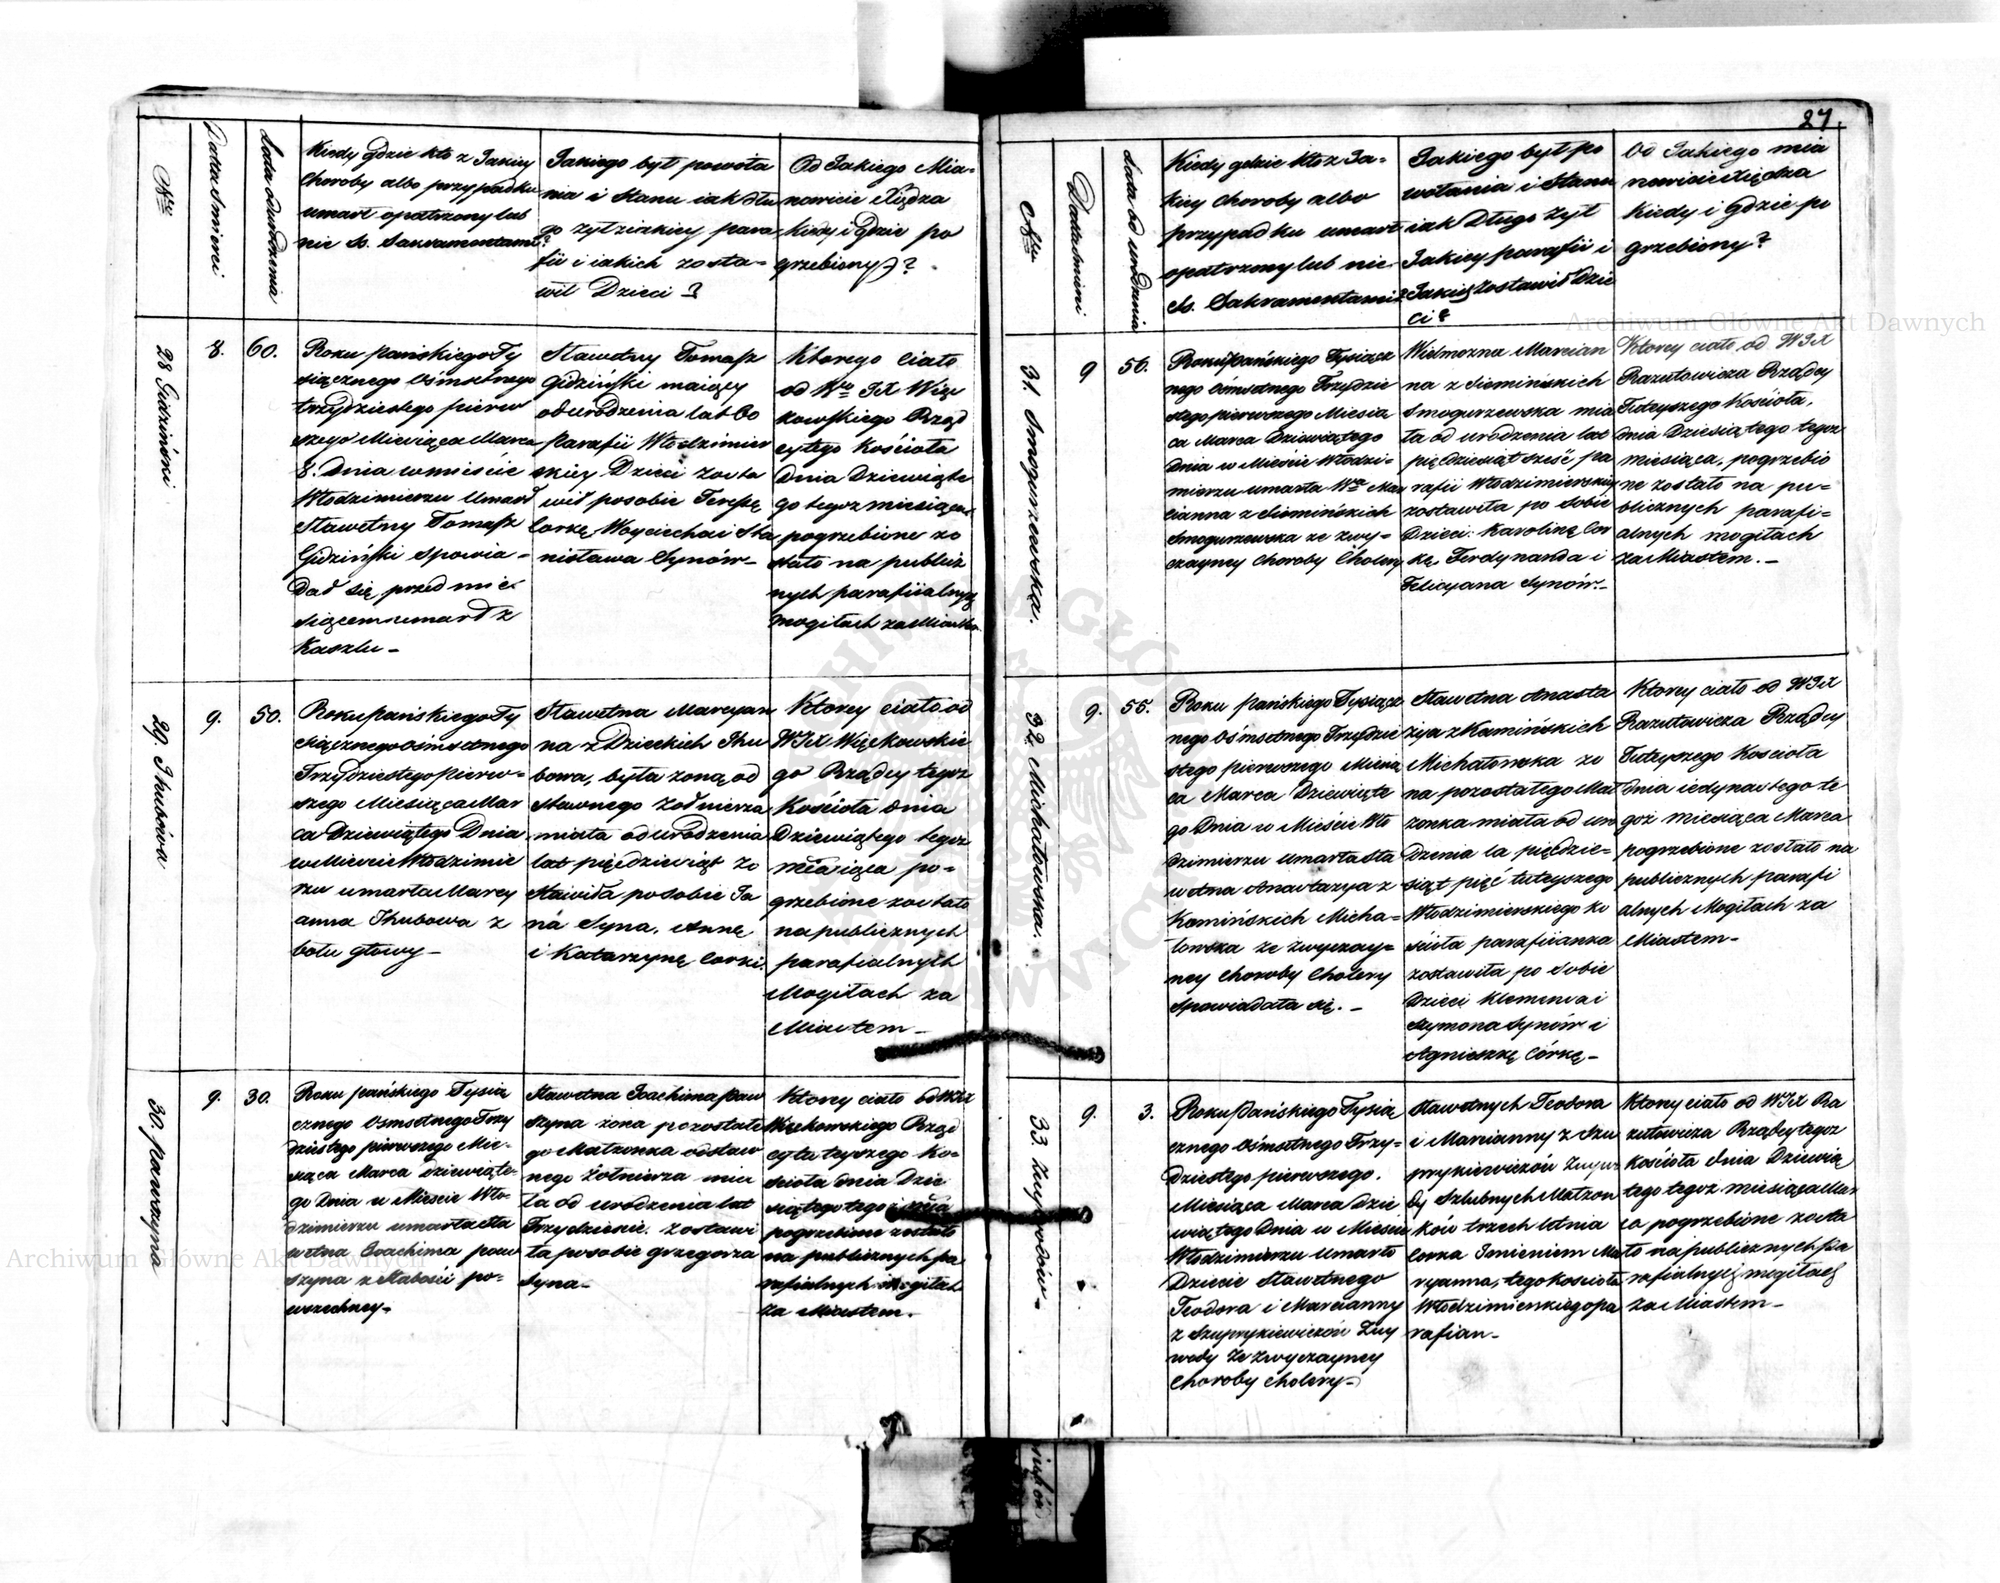 27.
Nro
Datta śmierci
Lata od urodzenia
Kiedy gdzie kto z Jakiey
Choroby albo przypadku
umarł opatrzony lub
nie Ss. Sakramentami?
Jakiego był powoła
nia i Stanu iak dłu
go żył z iakiey para
fii i iakich zosta-
wił Dzieci?
Od Jakiego Mia-
nowicie Xiędza
kiedy i Gdzie po
grzebiony?
28 Gidziński
8.
60.
Roku pańskiego Ty
siącznego ósmsetnego
trzydziestego pierw
szego Miesiąca Marca
8. Dnia w mieście
Włodzimierzu Umarł
Sławetny Tomasz
Gidziński spowia-
dał się przed mie
siącem umarł z
Kaszlu-
Sławetny Tomasz
Gidziński maiący
od urodzenia lat 60
Parafii Włodzimier
skiey Dzieci zosta
wił po sobie Teressę
Corkę, Woyciecha i Sta
nisława Synów-
Ktorego ciało
od Wgo JX Więc
kowskiego Rząd
cy tego Kościoła
Dnia Dziewiąte
go tegoż miesiąca
pogrzebione zo
stało na publicz
nych parafiialnych
mogiłach za Miastem
29. Thubowa
9.
50.
Roku Pańskiego Ty
siącznego ósmsetnego
Trzydziestego pierw-
szego Miesiąca Mar
ca Dziewiątego Dnia
w Mieście Włodzimie
rzu umarła Marcy
anna Thubowa z
bolu głowy-
Sławetna Marcyan
na z Dzieckich Thu
bowa, była żoną od
stawnego żołnierza
miała od urodzenia
lat pięćdziesiąt zo
stawiła po sobie Ja
na Syna, Annę
i Katarzynę Corki.
Ktorey ciało od
WJX Więckowskie
go Rządcy tegoż
Kościoła dnia
Dziewiątego tegoż
miesiąca po-
grzebione zostało
na publicznych
parafialnych
Mogiłach za
Miastem-
30. Pawszyna
9.
30.
Roku pańskiego Tysią
cznego ósmsetnego Trzy
dziestego pierwszego Mie-
siąca Marca dziewiąte-
go Dnia w Mieście Wło-
dzimierzu umarła Sła
wetna Joachima paw
szyna z słabości po-
wszechney-
Sławetna Joachima Paw
szyna żona pozostałe
go Małżonka odstaw
nego Żołnierza mia
ła od urodzenia lat
Trzydzieście. zostawi
ła po sobie Grzegorza
Syna-
Ktorey ciało od WJX
Więckowskiego Rząd
cy tuteyszego Ko-
ścioła dnia Dzie
siątego tegoż
pogrzebione zostało
na publicznych pa
rafialnych mogiłach
za Miastem.
Nro
Datta śmierci
Lata od urodzenia
Kiedy gdzie kto z Ja-
kiey choroby albo
przypadku umarł
opatrzony lub nie
Ss. Sakramentami?
Jakiego był po
wołania i Stanu
iak Długo żył
Jakiey parafii i
Jakie zostawił Dzie
ci?
Od Jakiego mia
nowicie Xiędza
Kiedy i Gdzie po
grzebiony?
31. Smogurzewska.
9
56.
Roku Pańskiego Tysiącz
nego ósmsetnego Trzydzie
stego pierwszego Miesią
ca Marca Dziewiątego
Dnia w Mieście Włodzi-
mierzu umarła Wa Mar
cianna z Siemińskich
Smogurzewska ze zwy-
czayney choroby Cholery
Wielmożna Marcian
na z Siemińskich
Smogurzewska mia
ła od urodzenia lat
pięćdziesiąt sześć pa
rafii Włodzimierskiey
zostawiła po sobie
Dzieci: Karolinę Cor
kę, Ferdynanda i
Felicyana Synów.-
Ktorey ciało od WJX
Razutowicza Rządcy
Tuteyszego Kościoła,
dnia Dziesiątego tegoż
miesiąca, pogrzebio
ne zostało na pu-
blicznych parafi-
alnych mogiłach
za Miastem.-
32. Michałowska.
9.
55.
Roku pańskiego Tysiącz
nego ósmsetnego Trzydzie
stego pierwszego Miesią
ca Marca Dziewiąte
go Dnia w Mieście Wło
dzimierzu umarła Sła
wetna Anastazya z
Kamińskich Micha-
łowska ze zwyczay-
ney choroby Cholery
Spowiadała się.-
Sławetna Anasta
zya z Kamińskich
Michałowska żo
na pozostałego Mał
żonka miała od uro
dzenia la pięćdzie-
siąt pięć tuteyszego
Włodzimierskiego ko
ścioła parafiianka
zostawiła po sobie
Dzieci Klemensa i
Szymona Synów i
Agnieszkę córkę-
Ktorey ciało od WJX
Razutowicza Rządcy
Tuteyszego Kościoła
dnia iedynastego te
goż miesiąca Marca
pogrzebione zostało na
publicznych parafi
alnych Mogiłach za
Miastem-
33.
9.
3.
Roku Pańskiego Tysią
cznego ósmsetnego Trzy-
dziestego pierwszego.
Miesiąca Marca Dzie
wiątego Dnia w Mieście
Włodzimierzu umarło
Dziecie Sławetnego
Teodora i Marcianny
z Szuprykiewiczów Zwy
wody ze zwyczayney
choroby cholery-
Sławetnych Teodora
i Marcianny z Szu
prykiewiczów
Szlubnych Małżon
ków trzech letnia
Corka Imieniem Ma
ryanna, tego kościoła
Włodzimierskiego pa
rafian-
Ktorey ciało od WJX Ra
zutowicza Rządcy tegoż
Kościoła dnia Dziewią
tego tegoż miesiąca Mar
ca pogrzebione zosta
ło na publicznych Pa
rafialnych mogiłach
za Miastem-
Archiwum Główne Akt Dawnych
Archiwum Główne Akt Dawnych